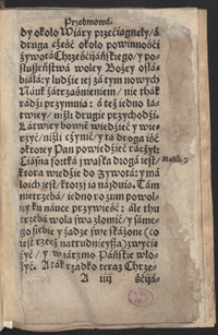 Przedmowá.
dy około Wiáry przeciągnęły/ á
druga cżęść około powinnośći
żywotá Chrześćijáńskiego/ y po-
słuszeństwá woley Bożey osłá-
biáłá: y ludzie iej zá tym nowych
Náuk zátrząśnieniem/ nie ták
rádźi przymuią: á też iedno łá-
twiey/ niżli drugie przychodźi.
Łátwiey bowiem wiedźieć y wie-
rzyć/ niżli cżynić/ y tá drogá iść
o ktorey Pan powiedźieć racżył:
Ciásna fortká y wąska drogá iest/
ktora wiedźie do żywotá: y má-
ło ich jest/ ktorzy ią náyduią. Tám
nietrzebá/ iedno rozum powol-
ny ku náuce przywieść: ále tu
trzebá wola swą złomić/ y sáme-
go śiebie y żądze swe skáżone (co
iest rzecż natrudnieyszą) zwycię-
żyć/ y w iárzmo Páńskie wło-
żyć. A ták rzadko teraz Chrze-
A iiij
śćijá-
Matth. 7